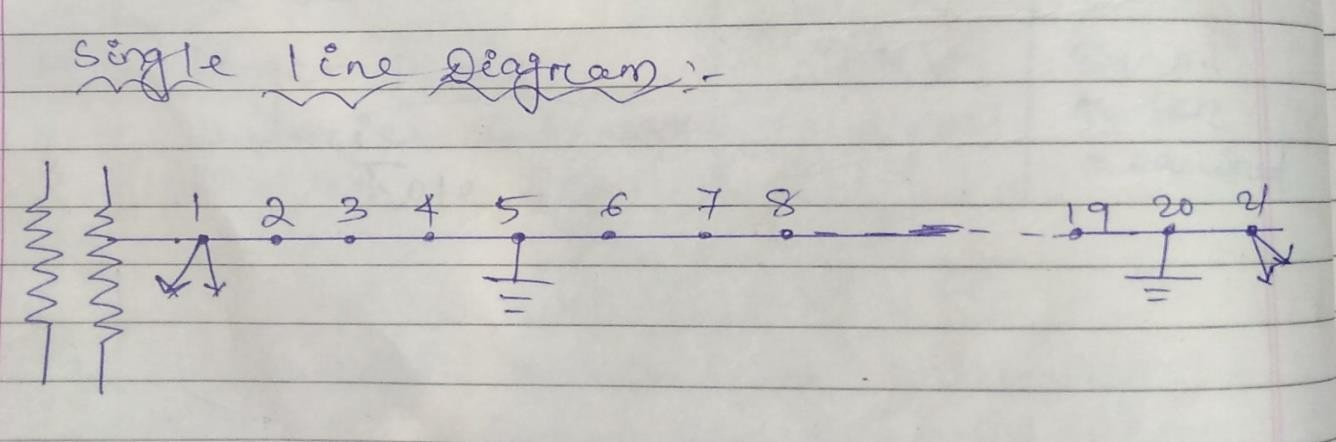 Single line Diagram :-
1 2 3 4 5 6 7 8 19 20 21